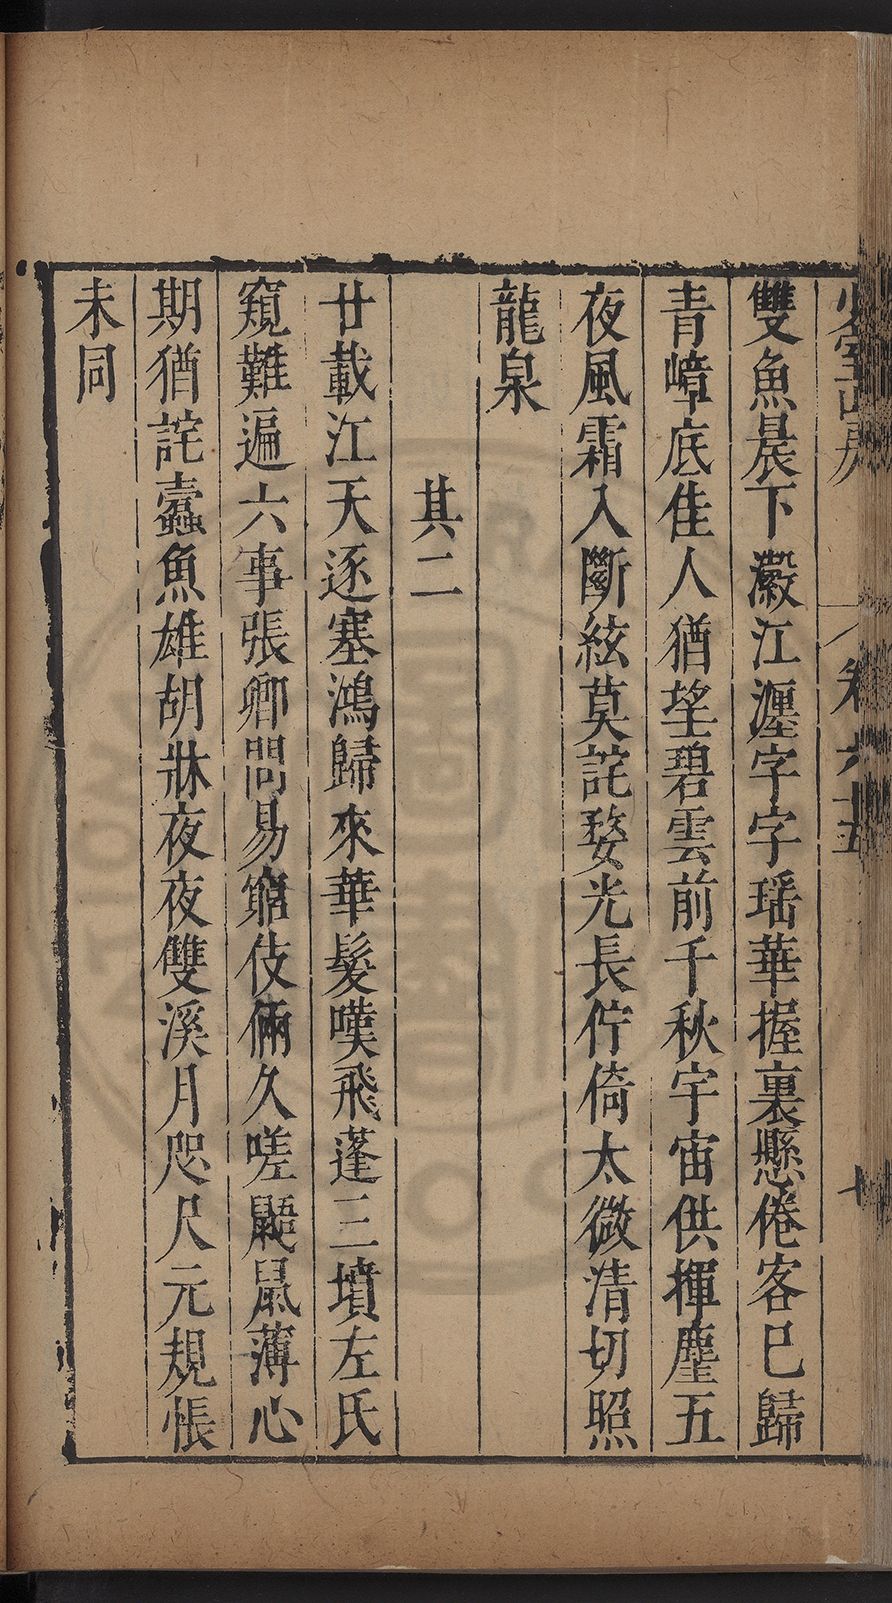 雙魚晨下瀫江㕓字字瑶華握裏懸倦客巳歸
青嶂底佳人猶望碧雲前千秋宇宙供揮麈五
夜風霜入斷絃莫詫婺光長佇倚太微清切照
龍泉
其二
廿載江天逐塞鴻歸來華髮嘆飛蓬三墳左氏
窺難遍六事張卿問易窮伎倆久嗟鼯鼠薄心
期猶詫蠹魚雄胡牀夜夜雙溪月咫尺元規悵
未同